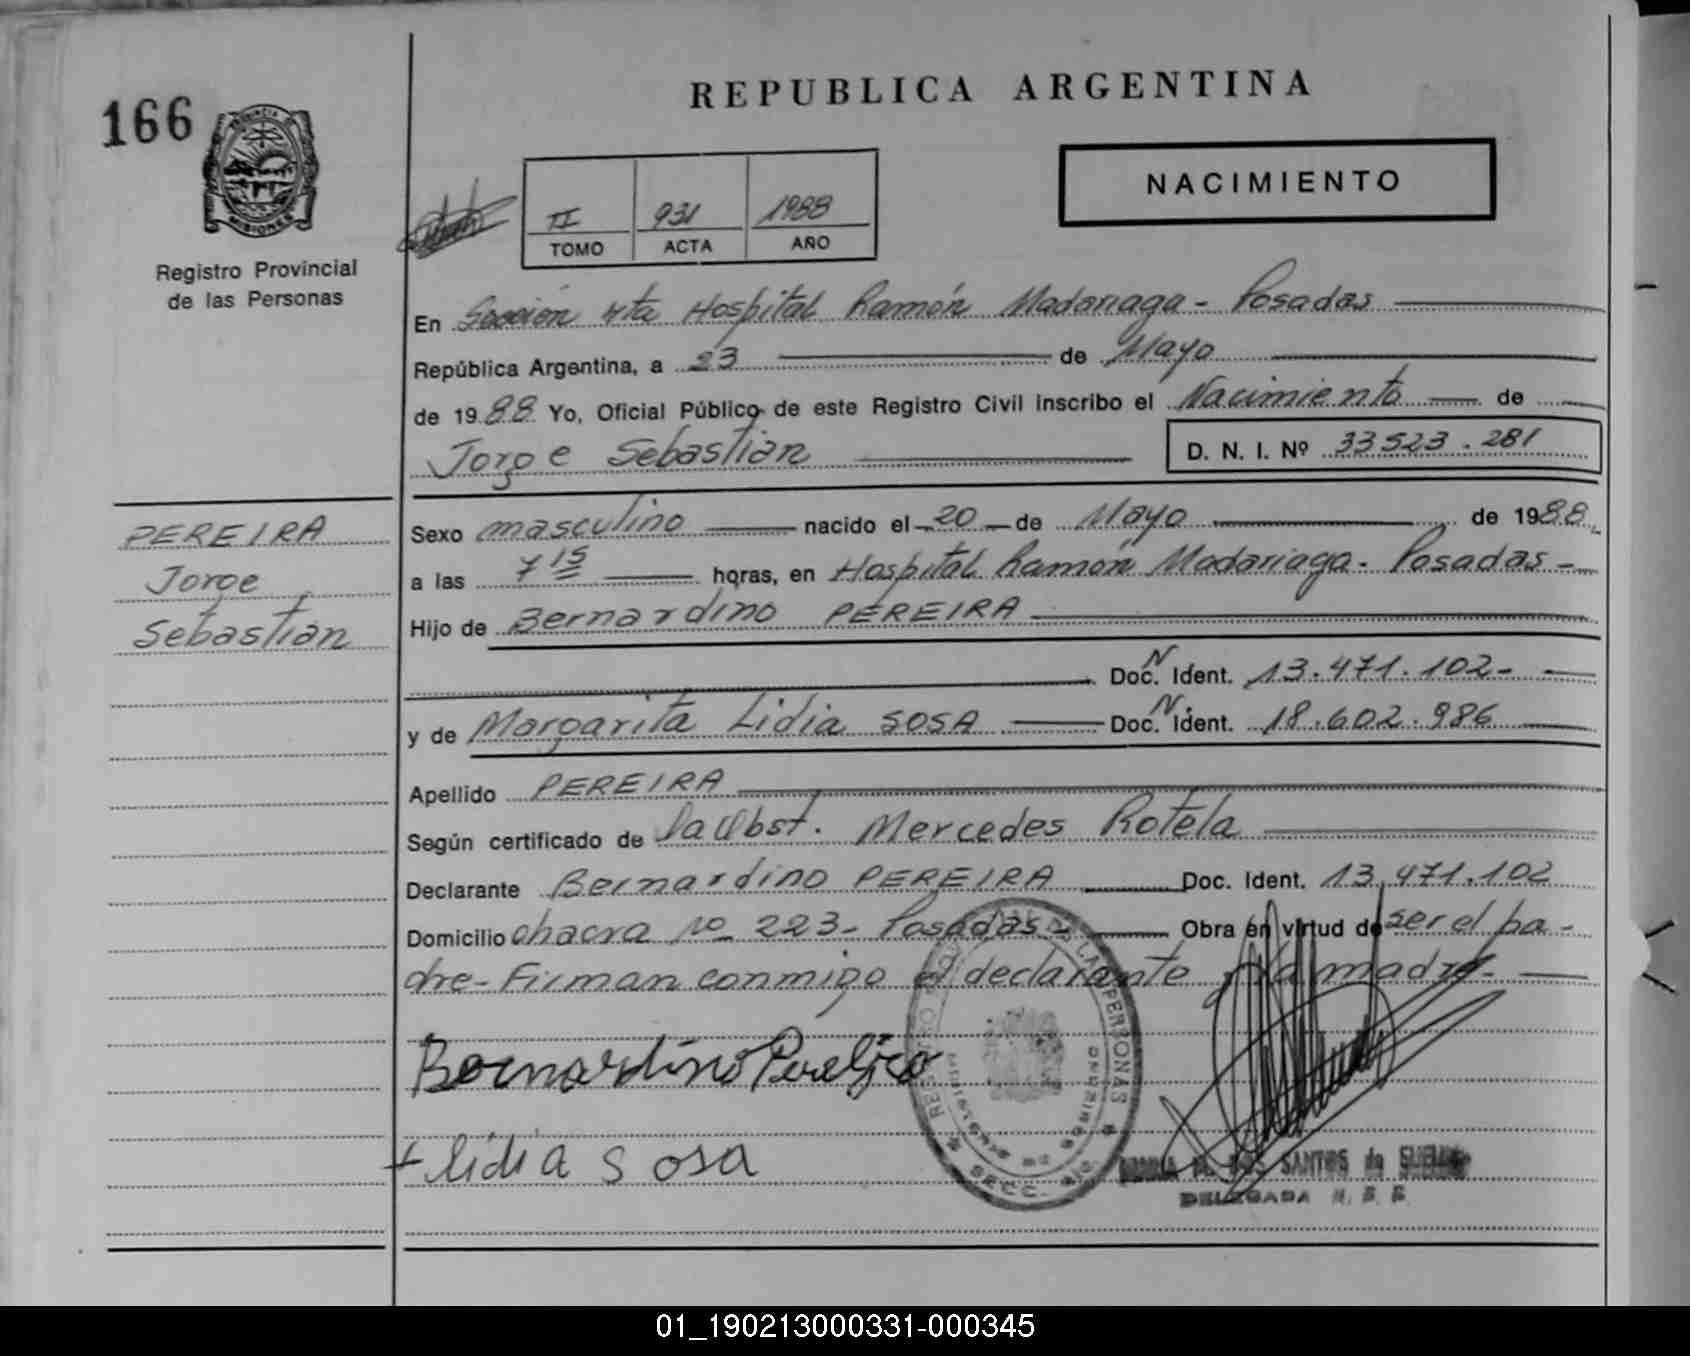 REPUBLICA ARGENTINA
166
NACIMIENTO
II 931 1988
TOMO ACTA AÑO
PROVINCIA DE
MISIONES
Registro Provincial
de las Personas
En Sección 4ta Hospital Ramón Madariaga - Posadas
República Argentina, a 23 de Mayo
de 1988 Yo, Oficial Público de este Registro Civil inscribo el Nacimiento de
Jorge Sebastian D. N. I. Nº 33523.281
PEREIRA
Jorge
Sebastian
Sexo masculino nacido el 20 de Mayo de 1988
a las 7 15 horas, en Hospital Ramón Madariaga - Posadas -
Hijo de Bernardino PEREIRA
Doc. N Ident. 13.471.102-
y de Margarita Lidia SOSA Doc. N Ident. 18.602.986
Apellido PEREIRA
Según certificado de la Obst. Mercedes Rotela
Declarante Bernardino PEREIRA Doc. Ident. 13.471.102
Domicilio chacra nº 223- Posadas- Obra en virtud de ser el pa-
dre- Firman conmigo el declarante y la madre-
REGISTRO DE LAS PERSONAS
MISIONES
SECC.
Bernardino
lidia sosa
DOS SANTOS de
DELEGADA
01_190213000331-000345